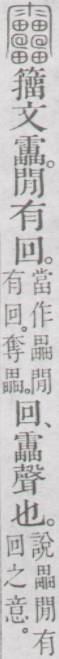 籒文靁。閒有回。
當作畾閒
有回。奪畾。
回、靁聲也。
說畾閒有
回之意。